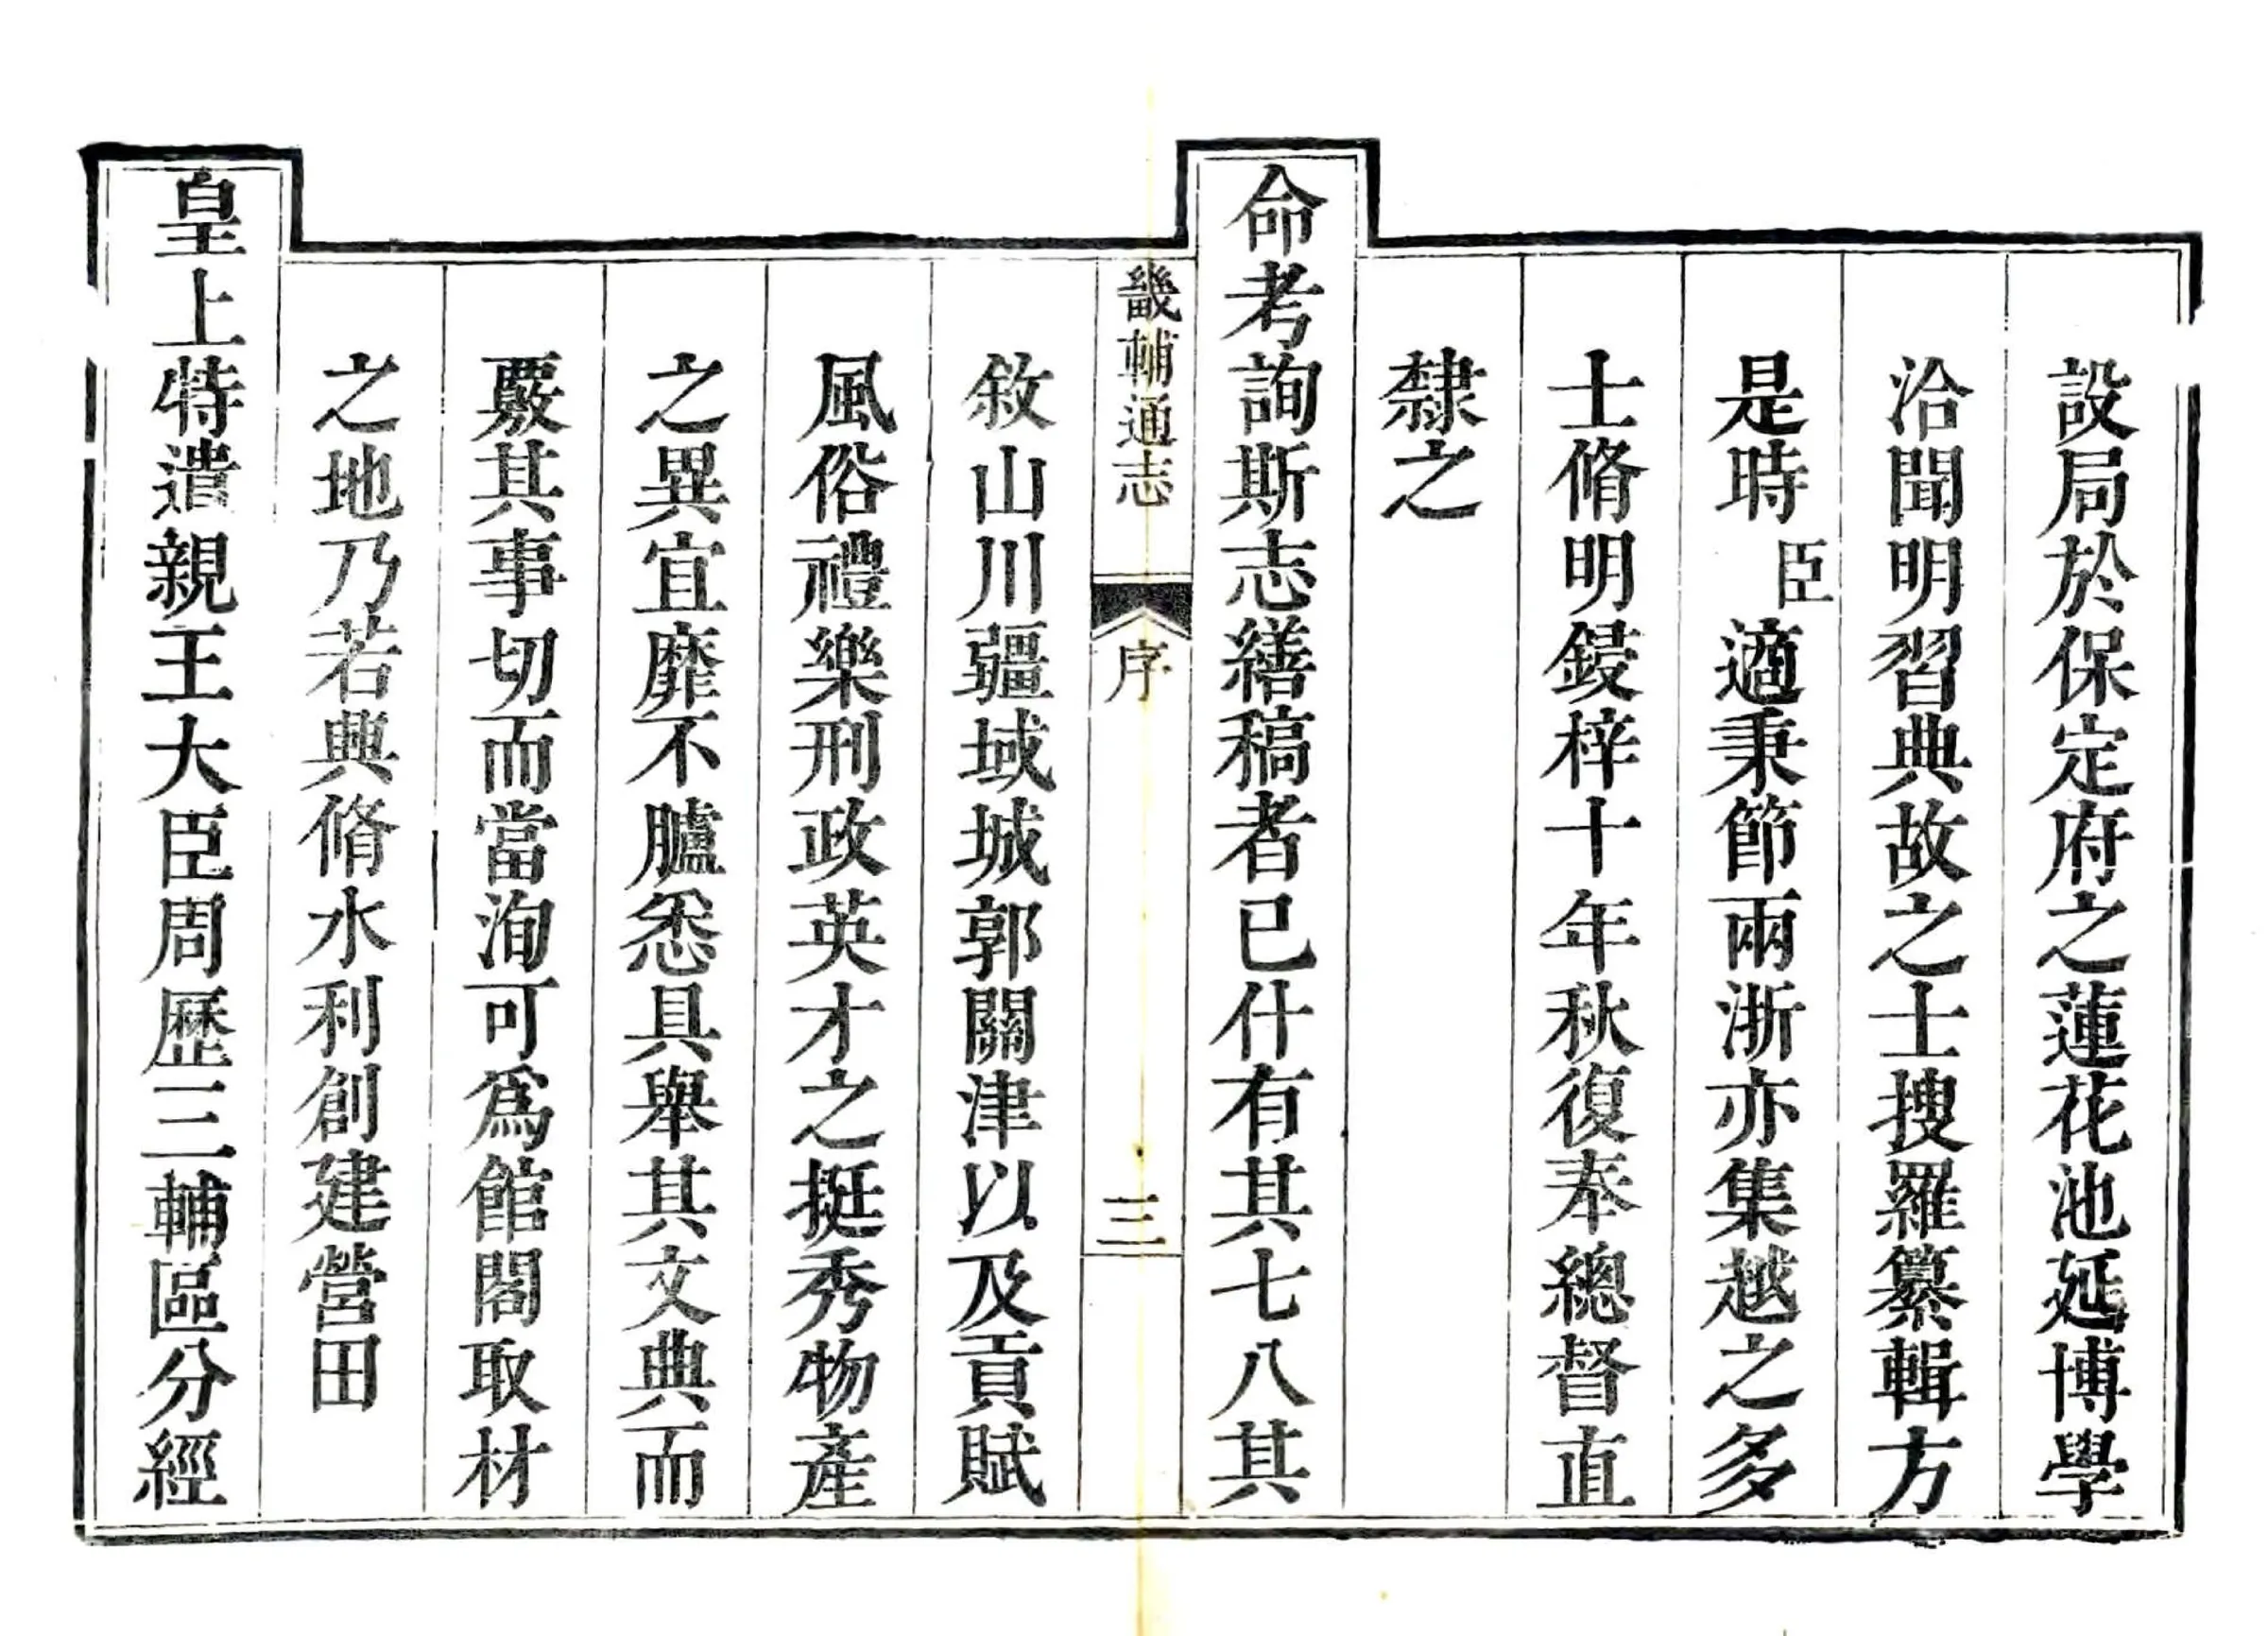 設局於保定府之蓮花池延博學
洽聞明習典故之士搜羅纂輯方
是時臣適秉節兩浙亦集越之多
士脩明鋟梓十年秋復奉總督直
隸之
命考詢斯志繕稿者已什有其七八其
畿輔通志 序 三
敘山川疆域城郭關津以及貢賦
風俗禮樂刑政英才之挺秀物產
之異宜靡不臚悉具舉其文典而
覈其事切而當洵可爲館閣取材
之地乃若典脩水利創建營田
皇上特遣親王大臣周歷三輔區分經